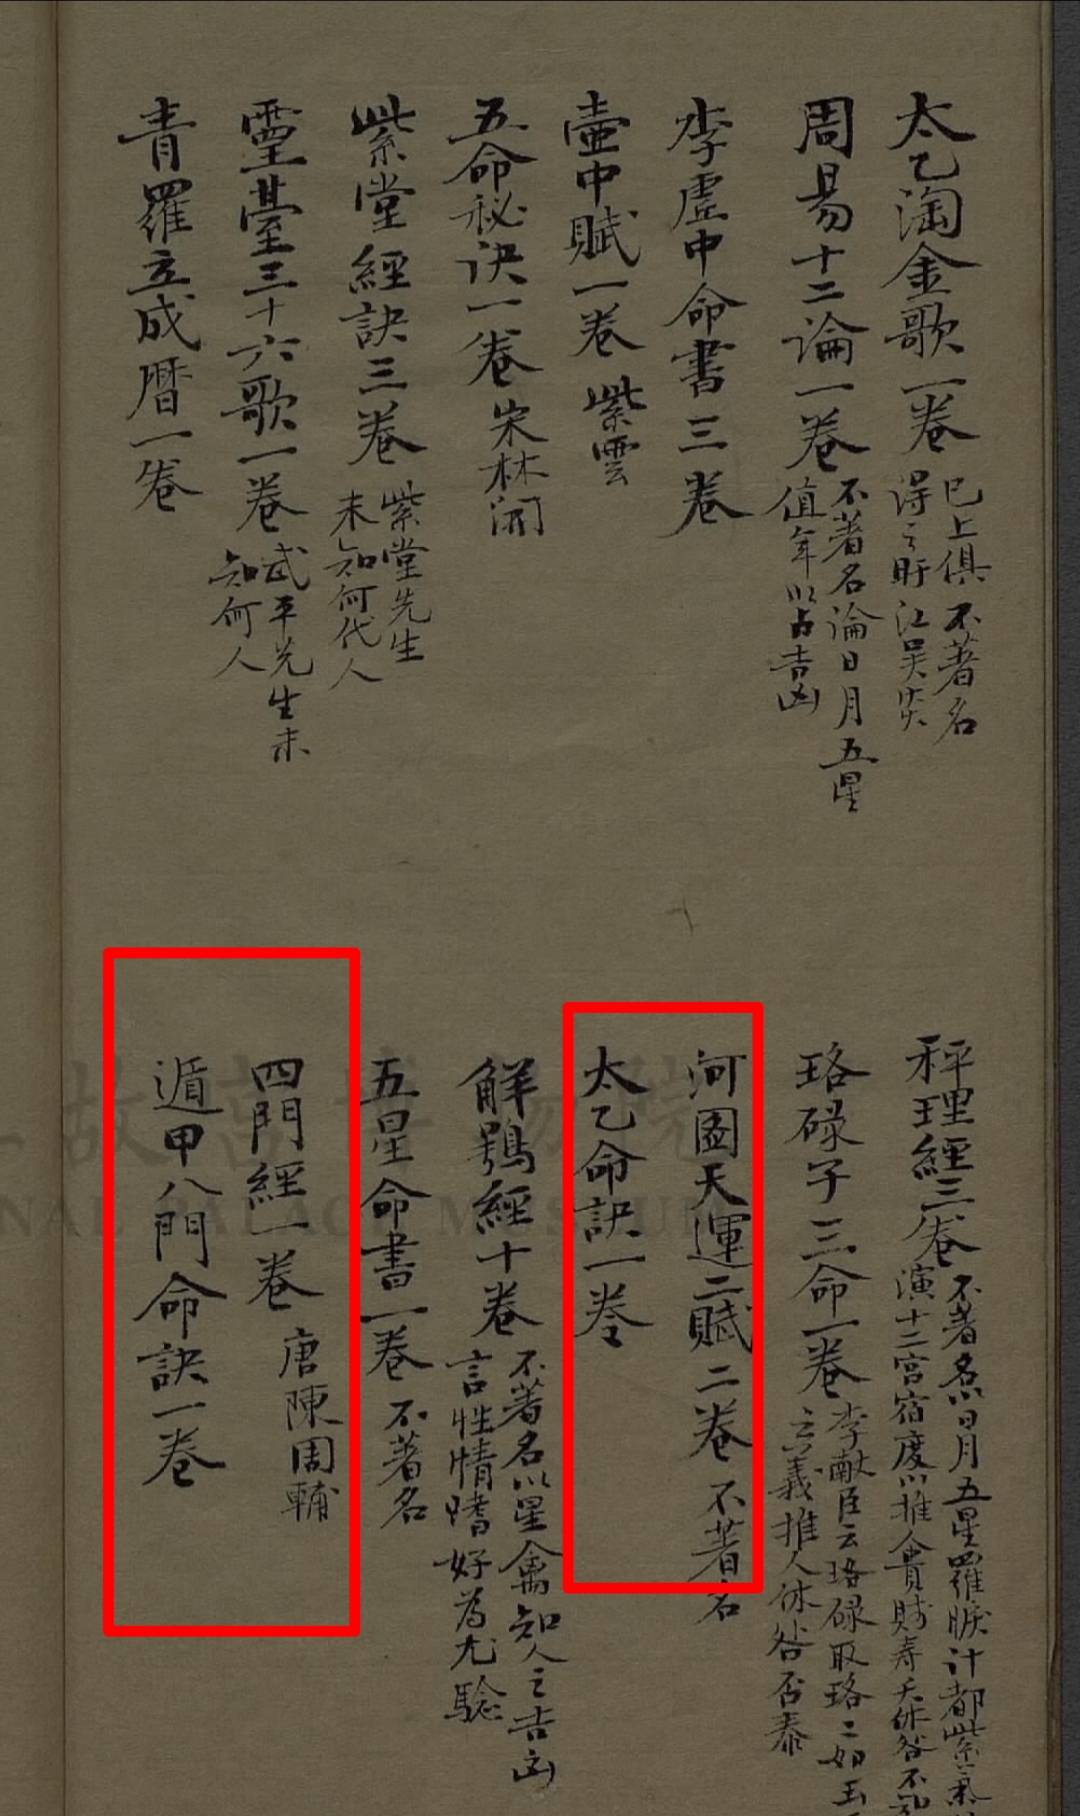 太乙淘金歌一卷 已上俱不著名
得之盱江吳炎
周易十二論一卷 不著名論日月五星
值年以占吉凶
李虛中命書三卷
壷中賦一卷 紫雲
五命秘诀一卷 宋林開
紫堂經訣三卷 紫堂先生
未知何代人
靈臺三十六歌一卷 武平先生未
知何人
青羅立成暦一卷
秤理經三卷 不著名以日月五星羅睺計都紫氣
演十二宮宿度以推人貴賤壽夭休咎不知
珞碌子三命一卷 李獻臣云珞碌取珞二如玉
之義推人休咎否泰
河圖天運二賦二卷 不著名
太乙命訣一卷
鮮鶚經十卷 不著名以星禽知人之吉凶
言性情嗜好為尤驗
五星命書一卷 不著名
四門經一卷 唐陳周輔
遁甲八門命訣一卷
故宮博物院
NAL PALACE MUSEUM